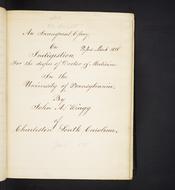 An Inaugural Essay
On
Indigestion
For the degree of Doctor of Medicine
In the
University of Pennsylvania,
By
John A. Wragg
of
Charleston South Carolina,